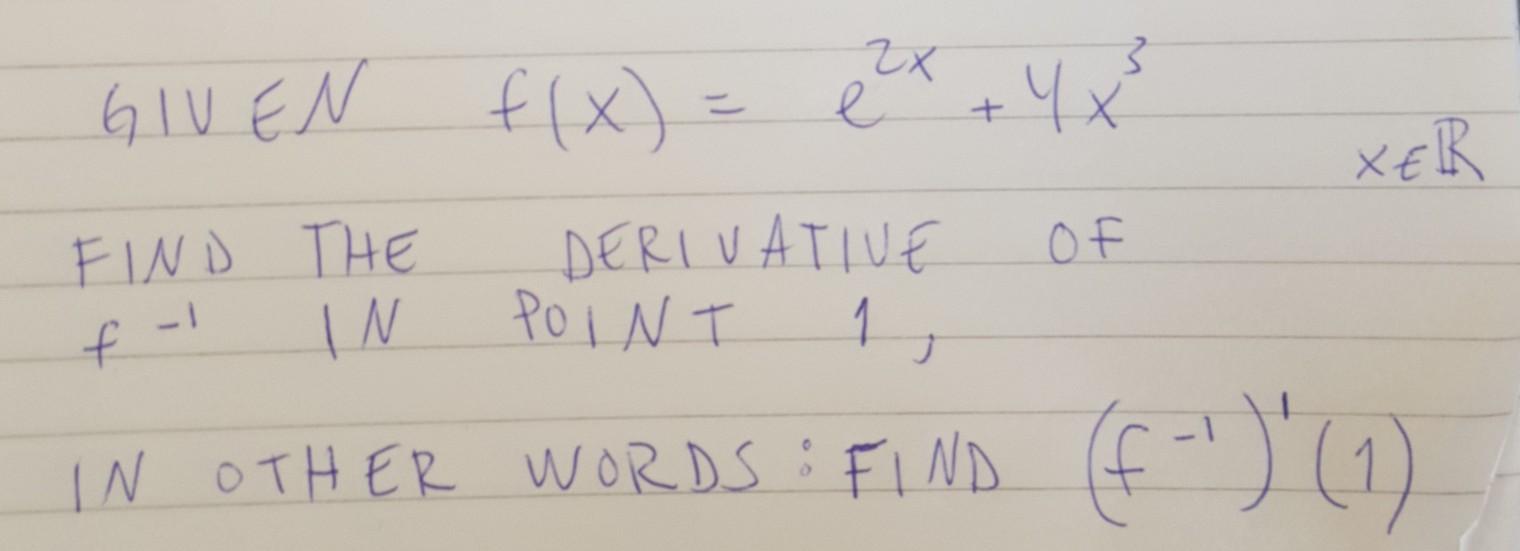 GIVEN f(x) = e^{2x} + 4x^3
x∈ℝ
FIND THE DERIVATIVE OF
f^{-1} IN POINT 1,
IN OTHER WORDS: FIND (f^{-1})'(1)